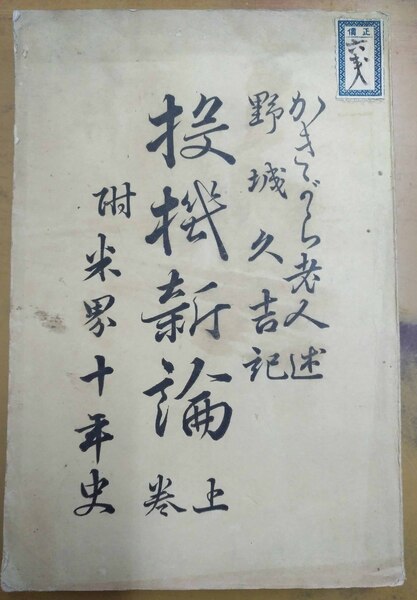 正價
かきがら老人述
野城久吉記
投機新論 上巻
附米界十年史